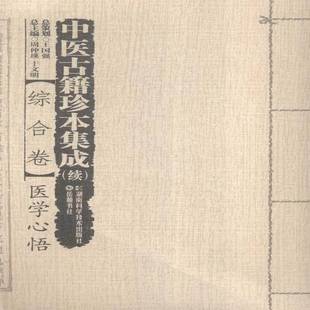 中医古籍珍本集成
(续)
总策划：王国强
总主编：周仲瑛 于文明
[综合卷]
医学心悟
湖南科学技术出版社
岳麓书社